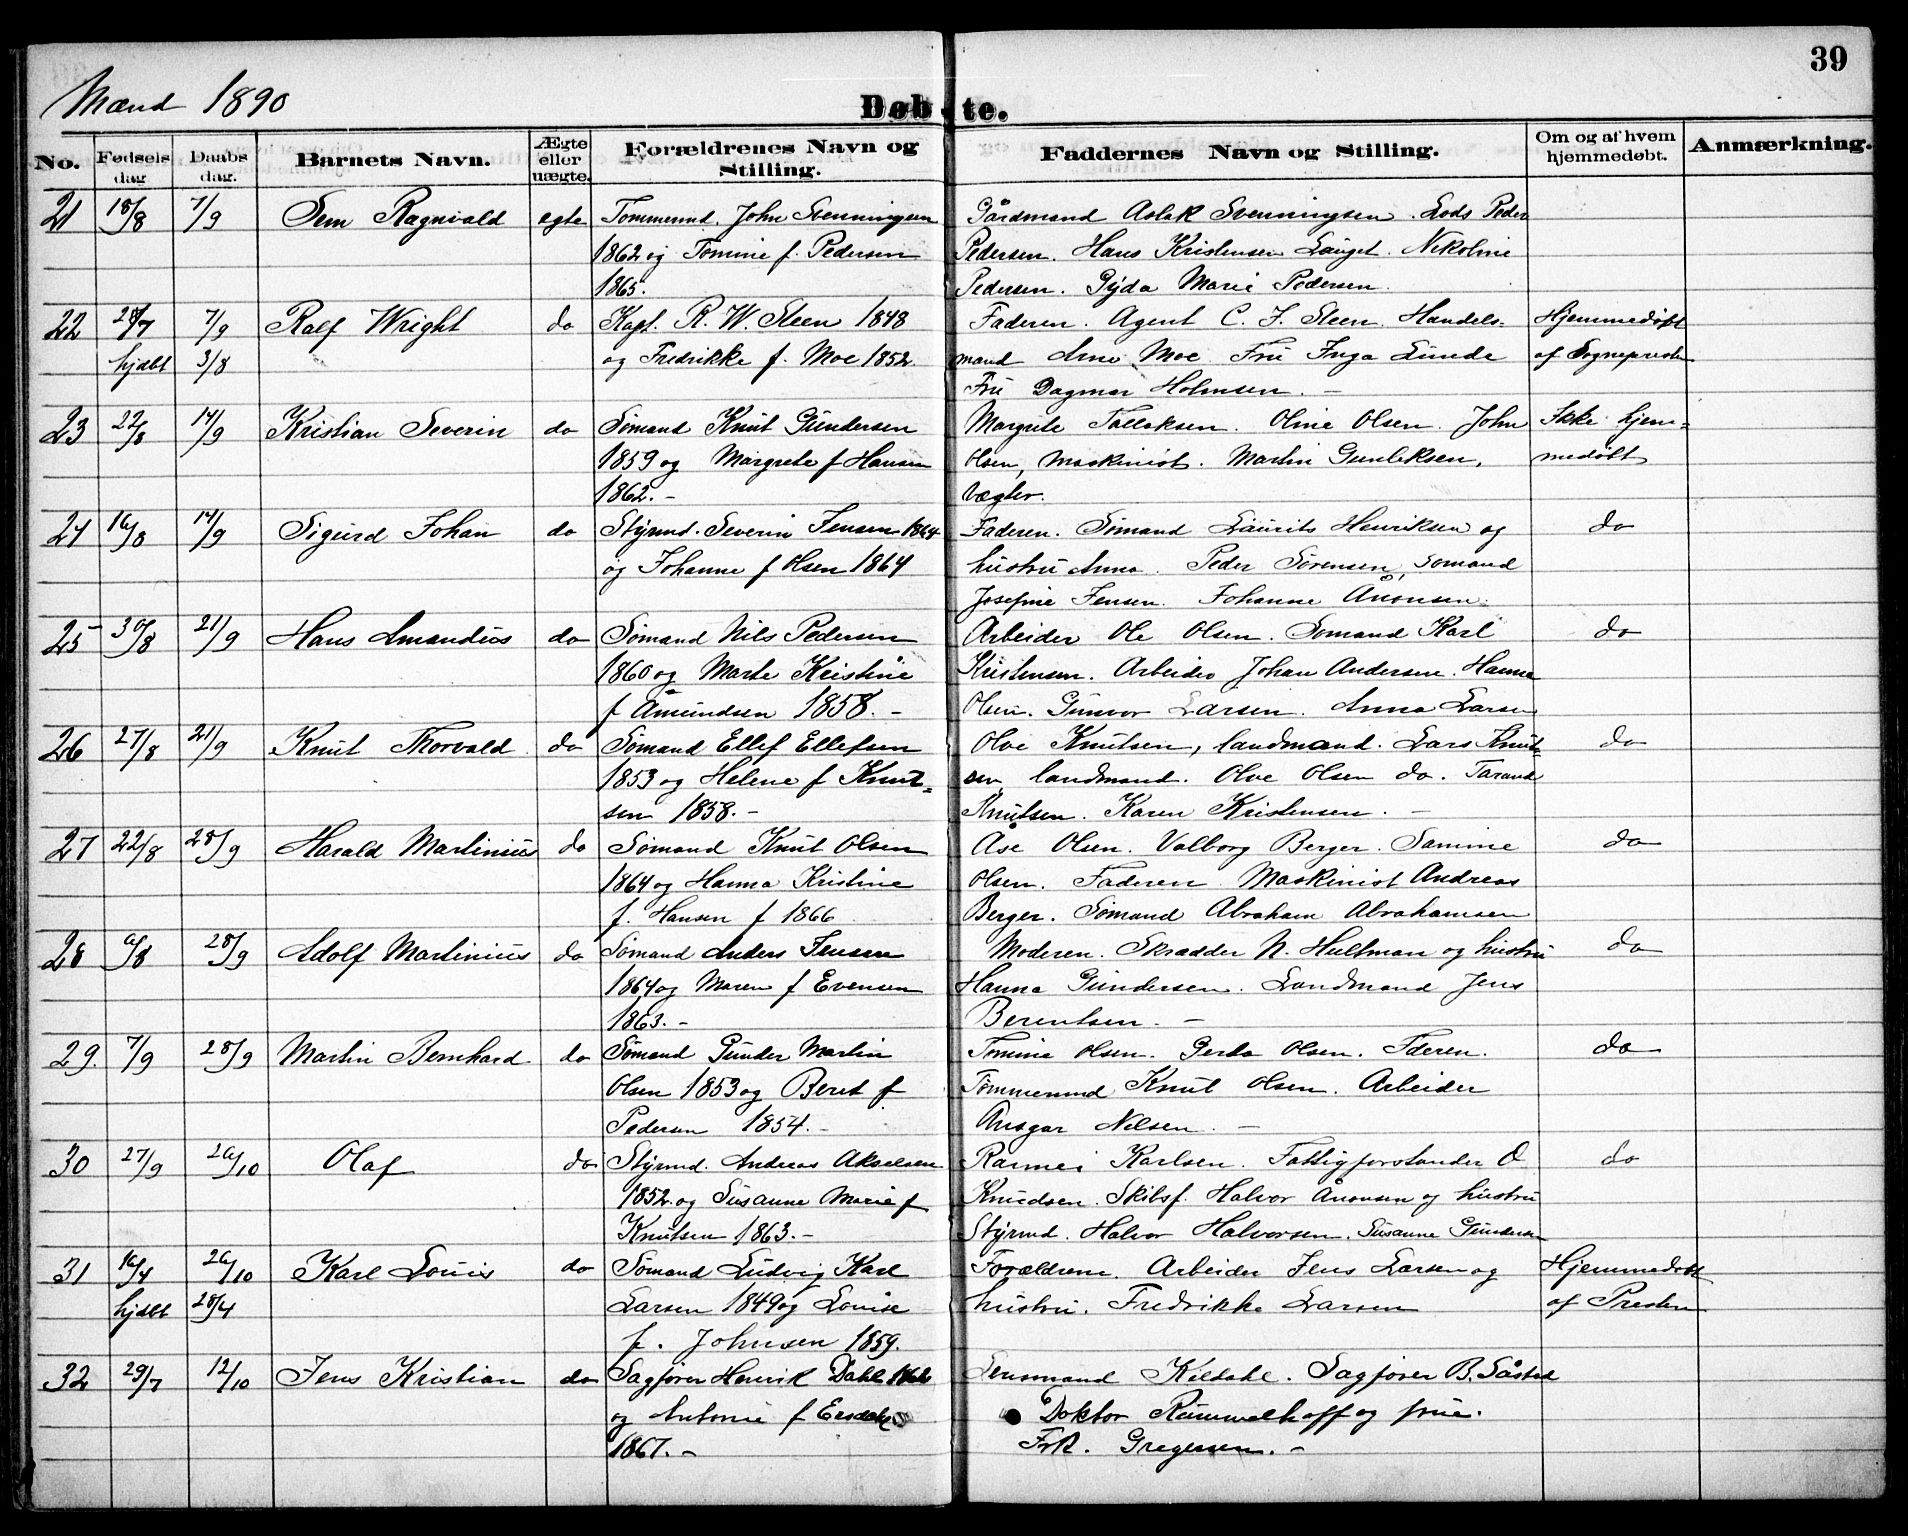 39
Mænd 1890
Døbte.
No. Fødsels dag Daabs dag. Barnets Navn. Ægte eller uægte. Forældrenes Navn og Stilling. Faddernes Navn og Stilling. Om og af hvem hjemmedøbt. Anmærkning.
21 18/8 7/9 Sem Ragnvald egte Tømmermd. John Svenningsen Gårdmand Aslak Svenningsen. Lods Peder
1862 og Tomine f. Pedersen Pedersen. Hans Kristensen Lauget. Nikoline
1865. Pedersen. Gyda Marie Pedersen.
22 28/7 7/9 Ralf Wright do Kapt. R. W. Steen 1848 Faderen. Agent C. F. Steen. Handels- Hjemmedøbt
hjdbt 3/8 og Fredrikke f. Moe 1852. mand Arne Moe. Fru Inga Lunde af Sognepresten
Fru Dagmar Holmsen. -
23 22/8 14/9 Kristian Severin do Sømand Knut Gundersen Margrete Tallaksen. Oline Olsen. John Ikke hjem-
1859 og Margrete f Hansen Olsen, maskinist. Martin Gunleksen, medøbt
1862. - Vægter.
24 16/8 14/9 Sigurd Johan do Styrmd. Severin Jensen 1864 Faderen. Sømand Laurits Henriksen og do
og Johanne f Olsen 1864 hustru Anna. Peder Sørensen, sømand
Josefine Jensen. Johanne Ånonsen.
25 30/8 21/9 Hans Amandus do Sømand Nils Pedersen Arbeider Ole Olsen. Sømand Karl do
1860 og Marte Kristine Kristensen. Arbeider Johan Andersen. Hanna
f Åmundsen 1858. - Olsen. Gunvor Larsen. Anna Larsen
26 27/8 21/9 Knut Thorvald do Sømand Ellef Ellefsen Olve Knutsen, landmand. Lars Knut- do
1853 og Helene f Knut- sen landmand. Olve Olsen do. Tarand
sen 1858. - Knutsen. Karen Kristensen. -
27 22/8 28/9 Harald Martinius do Sømand Knut Olsen Åse Olsen. Valborg Berger. Samine do
1864 og Hanna Kristine Olsen. Faderen. Maskinist Andreas
f. Hansen f 1866 Berger. Sømand Abraham Abrahamsen
28 6/8 28/9 Adolf Martinius do Sømand Anders Jensen Moderen. Skrædder N. Hultman og hustru do
1864 og Maren f Evensen Hanna Gundersen. Landmand Jens
1863. - Berentsen. -
29. 7/9 28/9 Martin Bernhard do Sømand Gunder Martin Tomine Olsen. Gerda Olsen. Fderen. do
Olsen 1853 og Beret f Tømmermd Knut Olsen. Arbeider
Pedersen 1854. - Ansgar Nelsen. -
30 27/9 26/10 Olaf do Styrmd. Andreas Akselsen Karlsen. Fattigforstander O do
1852. og Susanne Marie f Knudsen. Skibsf. Halvor Ånonsen og hustru
Knutsen 1863. - Styrmd. Halvor Halvorsen. Susanne Gundersen
31 16/4 26/10 Karl Louis do Sømand Ludvig Karl Forældrene. Arbeider Jens Larsen og Hjemmedøbt
hjdbt 28/4 Larsen 1849 og Louise hustru. Fredrikke Larsen af Presten
f. Johnsen 1859.
32 29/7 12/10 Jens Kristian do Sagfører Henrik Dahl Lensmand Kildahl. Sagfører B. Såstad
og Antonie f Doktor Rummelhoff og frue.
1867. - Frk. Gregersen. -